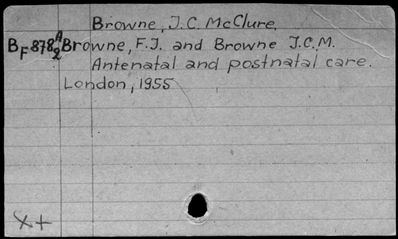 Browne, J.C. McClure.
BF878 A2 Browne, F.J. and Browne J.C.M.
Antenatal and postnatal care.
London, 1955
X+